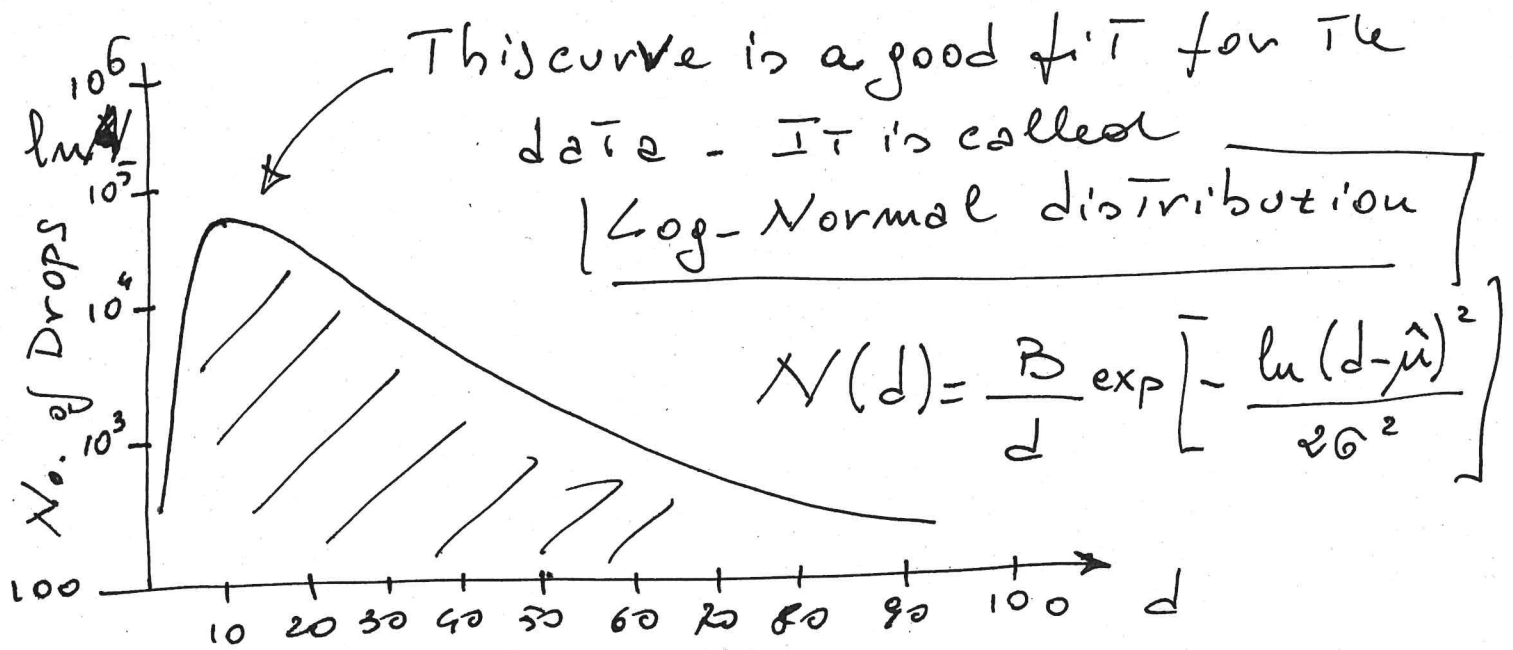 This curve is a good fit for the
data - It is called
Log-Normal distribution
N(d) = B/d exp[- ln(d-μ̂)²/2σ²]
10⁶
10⁵
10⁴
10³
100
No. of Drops
10 20 30 40 50 60 70 80 90 100 d